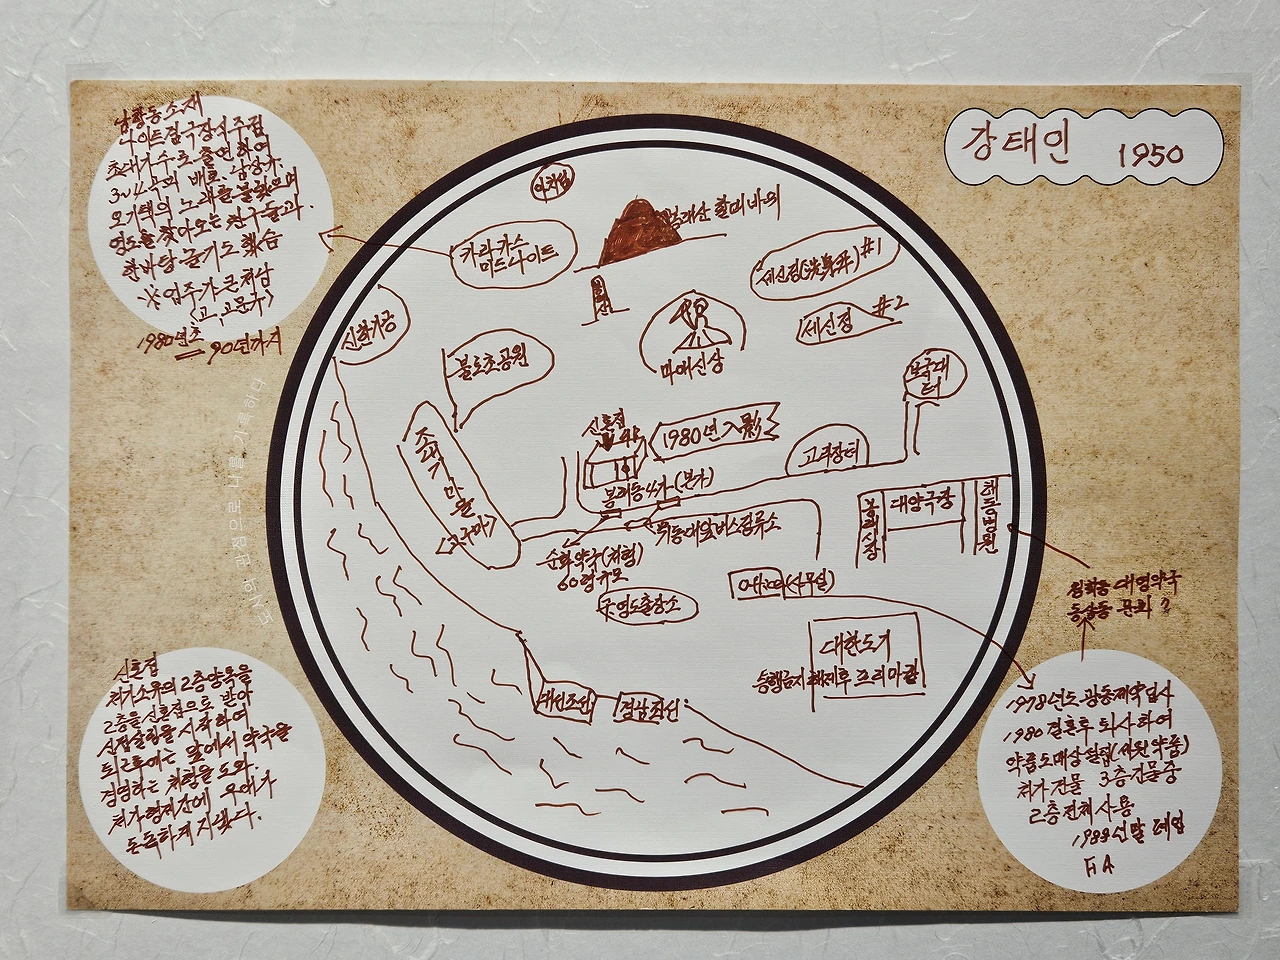 강태인 1950
남항동 소재
나이트겸 극장식 주점
초대가수로 출연하여
배호, 남상규,
오기택의 노래를 불렀으며
영도를 찾아오는 친구들과
한바탕 즐기도 했슴
※ 업주가 큰처남
1980년초
90년까지
카라카스
미드나이트
봉래산 할미바위
세신정 #1
세신정 #2
신한기공
불로초공원
마애신상
보국대
터
조내기마을
<고구마>
신혼집
1980년 入影
봉래동4가 (본가)
고려장터
봉래시장
대양극장
해동병원
버스정류소
순화약국(처형)
60평규모
영도출장소
(사무실)
대한도기
통행금지 해제후 프리마켓
대선조선
경남조선
대명약국
신혼집
처가소유의 2층양옥을
2층을 신혼집으로 받아
신접살림을 시작하여
퇴근후에는 앞에서 약국을
경영하는 처형을 도와.
처가 형제간에 우애가
돈독하게 지냈다.
1978년도 광동제약 입사
1980 결혼후 퇴사하여
약품도매상 설립(세원약품)
처가건물 3층건물중
2층전체 사용
1988년말 폐업
나의 시점으로 나를 기록하다